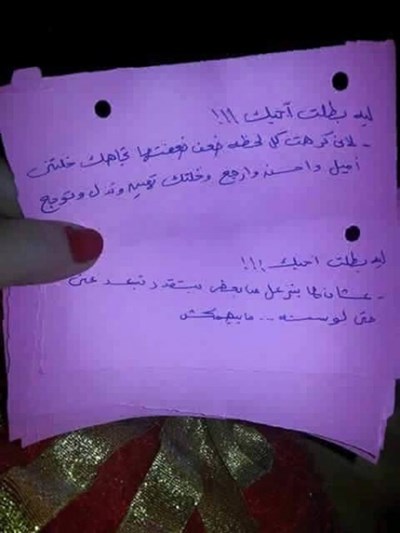 ليه بطلت أحبك !!!
- لاني كرهت كل لحظه ضعف ضعفتها تجاهك خلتني
أميل واحن وارجع وخلتك تهين وتذل وتوجع
ليه بطلت احبك !!!
- عشان لما بنزعل من بعض بتقدر تبعد عني
حتى لو سنه ... مابيهمكش